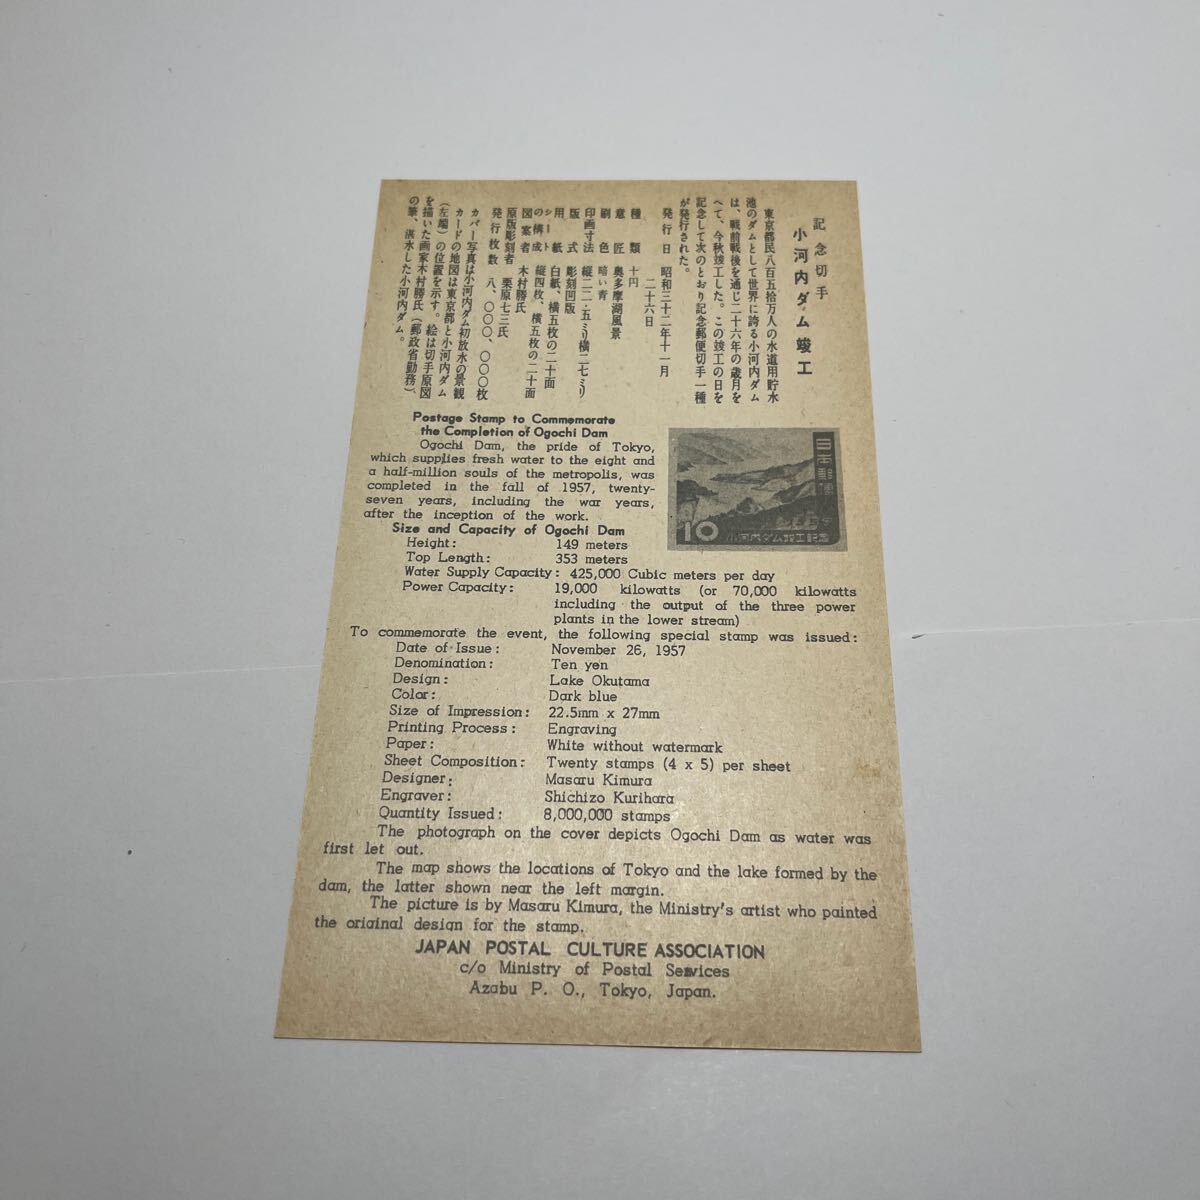 記念切手
小河内ダム竣工
東京都民八百五拾万人の水道用貯水
池のダムとして世界に誇る小河内ダム
は、戦前戦後を通じ二十六年の歳月を
へて、今秋竣工した。この竣工の日を
記念して次のとおり記念郵便切手一種
が発行された。
発行日 昭和三十二年十一月
二十六日
種類 十円
意匠 奥多摩湖風景
刷色 暗い青
印画寸法 縦二二・五ミリ横二七ミリ
版式 彫刻凹版
用紙 白紙、横五枚の二十面
シートの構成 縦四枚、横五枚の二十面
図案者 木村勝氏
原版彫刻者 栗原七三氏
発行枚数 八、〇〇〇、〇〇〇枚
カバー写真は小河内ダム初放水の景観
カードの地図は東京都と小河内ダム
(左端)の位置を示す。絵は切手原図
を描いた画家木村勝氏(郵政省勤務)
の筆、湛水した小河内ダム。
Postage Stamp to Commemorate
the Completion of Ogochi Dam
Ogochi Dam, the pride of Tokyo,
which supplies fresh water to the eight and
a half-million souls of the metropolis, was
completed in the fall of 1957, twenty-
seven years, including the war years,
after the inception of the work.
日本郵便
10
小河内ダム竣工記念
Size and Capacity of Ogochi Dam
Height: 149 meters
Top Length: 353 meters
Water Supply Capacity: 425,000 Cubic meters per day
Power Capacity: 19,000 kilowatts (or 70,000 kilowatts
including the output of the three power
plants in the lower stream)
To commemorate the event, the following special stamp was issued:
Date of Issue: November 26, 1957
Denomination: Ten yen
Design: Lake Okutama
Color: Dark blue
Size of Impression: 22.5mm x 27mm
Printing Process: Engraving
Paper: White without watermark
Sheet Composition: Twenty stamps (4 x 5) per sheet
Designer: Masaru Kimura
Engraver: Shichizo Kurihara
Quantity Issued: 8,000,000 stamps
The photograph on the cover depicts Ogochi Dam as water was
first let out.
The map shows the locations of Tokyo and the lake formed by the
dam, the latter shown near the left margin.
The picture is by Masaru Kimura, the Ministry's artist who painted
the original design for the stamp.
JAPAN POSTAL CULTURE ASSOCIATION
c/o Ministry of Postal Services
Azabu P. O., Tokyo, Japan.